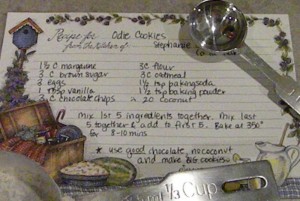 Recipe for Odie Cookies
from the kitchen of Stephanie
1½ C margarine 3C flour
3 C brown sugar 3C oatmeal
2 eggs 1½ tsp baking soda
1 tsp vanilla 1½ tsp baking powder
3 C chocolate chips 2C coconut
Mix 1st 5 ingredients together. Mix last
5 together & add to first 5. Bake at 350°
for 8-10 mins
* use good chocolate, no coconut
and make big cookies
1/3 Cup